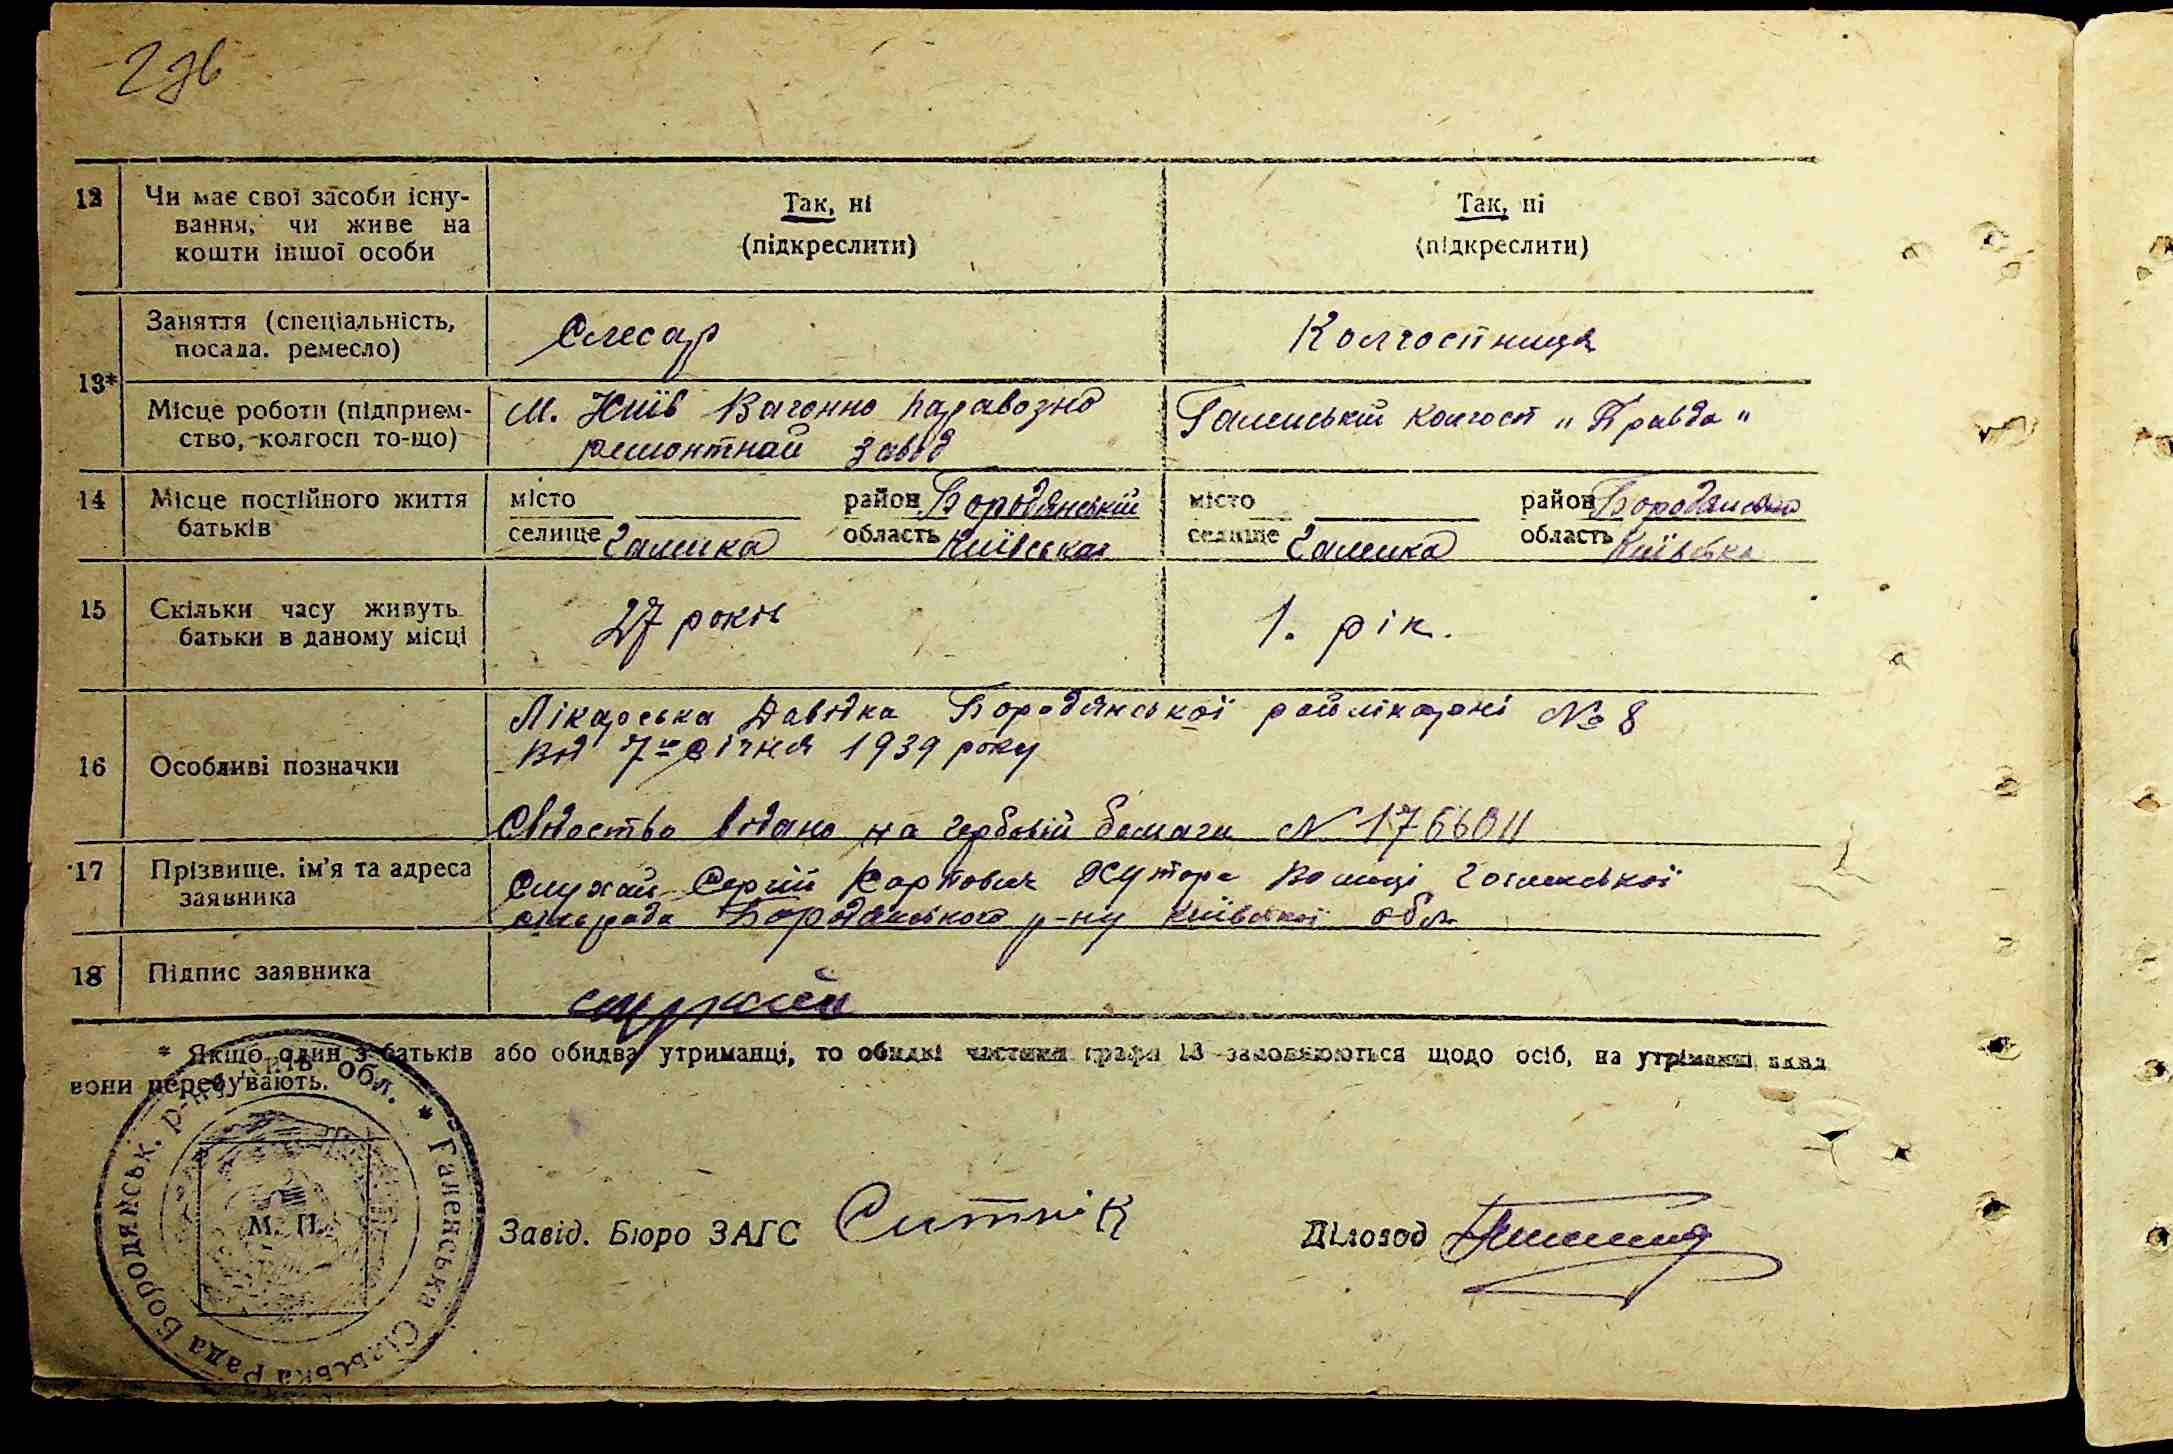 12 Чи має свої засоби існу-
вання, чи живе на
кошти іншої особи
Так, ні
(підкреслити)
Так, ні
(підкреслити)
13*
Заняття (спеціальність,
посада. ремесло)
Слесар
Колгостница
Місце роботи (підприєм-
ство, колгосп то-що)
М. Київ Вагонно паравозно
ремонтнай завод
колгост „Правда"
14 Місце постійного життя
батьків
місто район Бородянській
селище Галинка область Київська
місто район
селище Галинка область Київська
15 Скільки часу живуть
батьки в даному місці
27 років
1. рік.
16 Особливі позначки
Лікарська Давідка Бородянської райлікарні № 8
Від 7го січня 1939 року
на гербовій бомаги N
17 Прізвище. ім'я та адреса
заявника
Сергій Карпович Хутора
Бородянського р-ну Київської обл
18 Підпис заявника
* Якщо один з батьків або обидва утриманці, то обидві частини графи 13 заповнюються щодо осіб, на утриманні яких
вони перебувають.
Бородянськ. р-ну Київ. обл. * Сільська рада
М. П.
Завід. Бюро ЗАГС Ситнік
Діловод